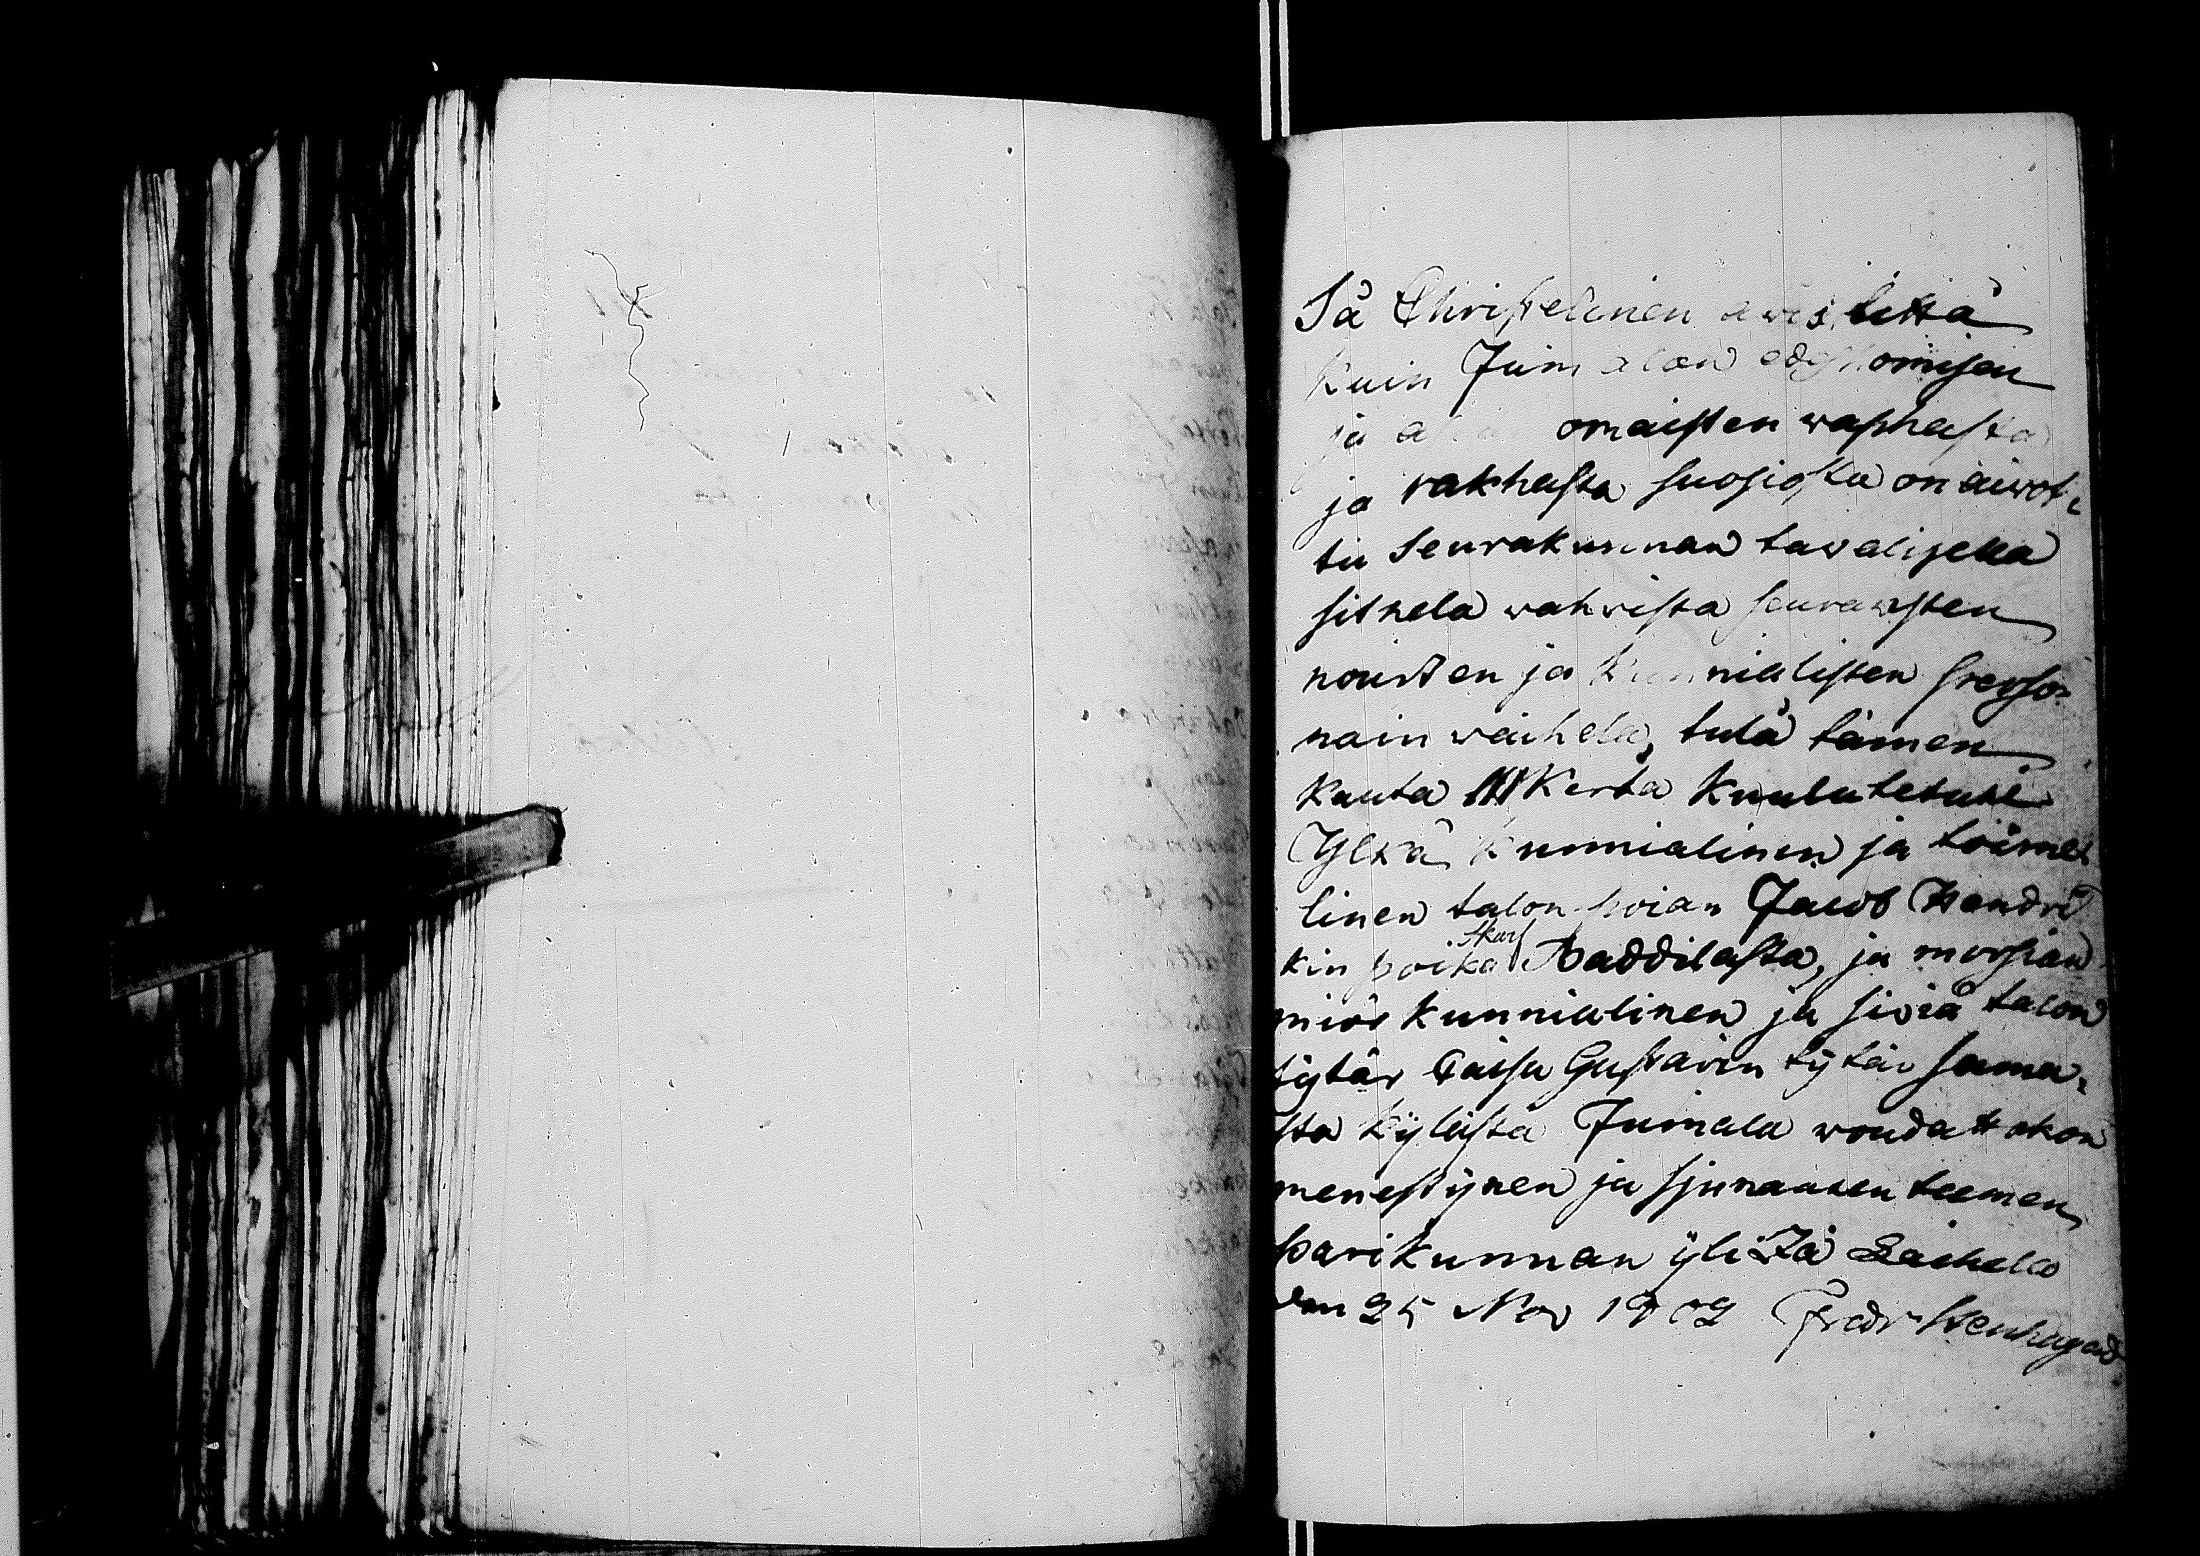 Sä Christelinen awiskessä
kuin Jumalan edhsomisen
ja omaisten washasta
ja rakhasta suosiosta on aiwot,
tu Seurakunnan tawalisella
sitnela wahwista seurawsten
nourten ja kunnialisten perso,
nain waihela, tulä tämen
kauta III kerta kuulutetuxi
Ylkä kunnialinen ja toime,
linen talon poian Jacob Hendri
kin poika Skarf Baddilasta, ja morsian
miös kunnialinen ja siviä talon
tÿtär Caisa Gustavin tÿtär sama,
sta kÿlästä Jumala woudattakon
menestÿxen ja sjunauxen teemen
parikunnan ÿlitzä Laihela
den 25 Nov 1802 Fredr